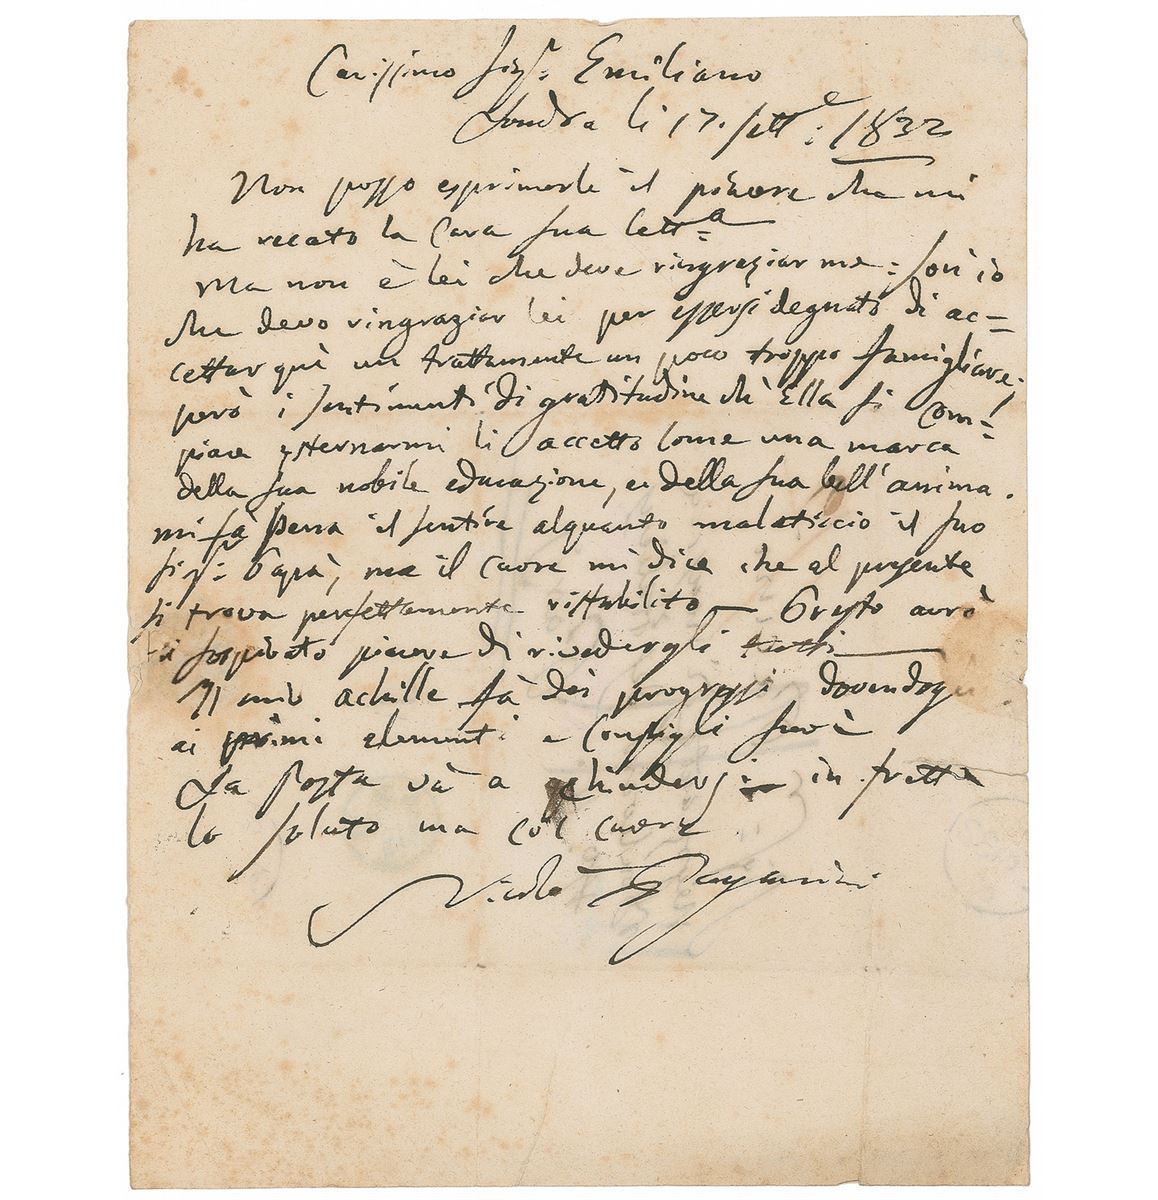 Carissimo Sigr: Emiliano
Londra li 17. Sett:e 1832
Non posso esprimerle il piacere che mi
ha recato la Cara sua lett:a
Ma non è lei che deve ringraziar me: son io
che devo ringraziar lei per essersi degnato di ac=
cettar quì un trattamento un poco troppo famigliare;
però i sentimenti di gratitudine ch'Ella si com=
piace esternarmi li accetto come una marca
della sua nobile educazione, e della sua bell'anima.
mi fà pena il sentire alquanto malaticcio il suo
sigr: Papà, ma il cuore mi dice che al presente
si trova perfettamente ristabilito — Presto avrò
il sospirato piacere di rivedergli tutti —
Il mio achille fà dei progressi dovendo
ai primi elementi e Consigli suoi
La posta và a chiudersi — in fretta
lo saluto ma col cuore
Nicolò Paganini